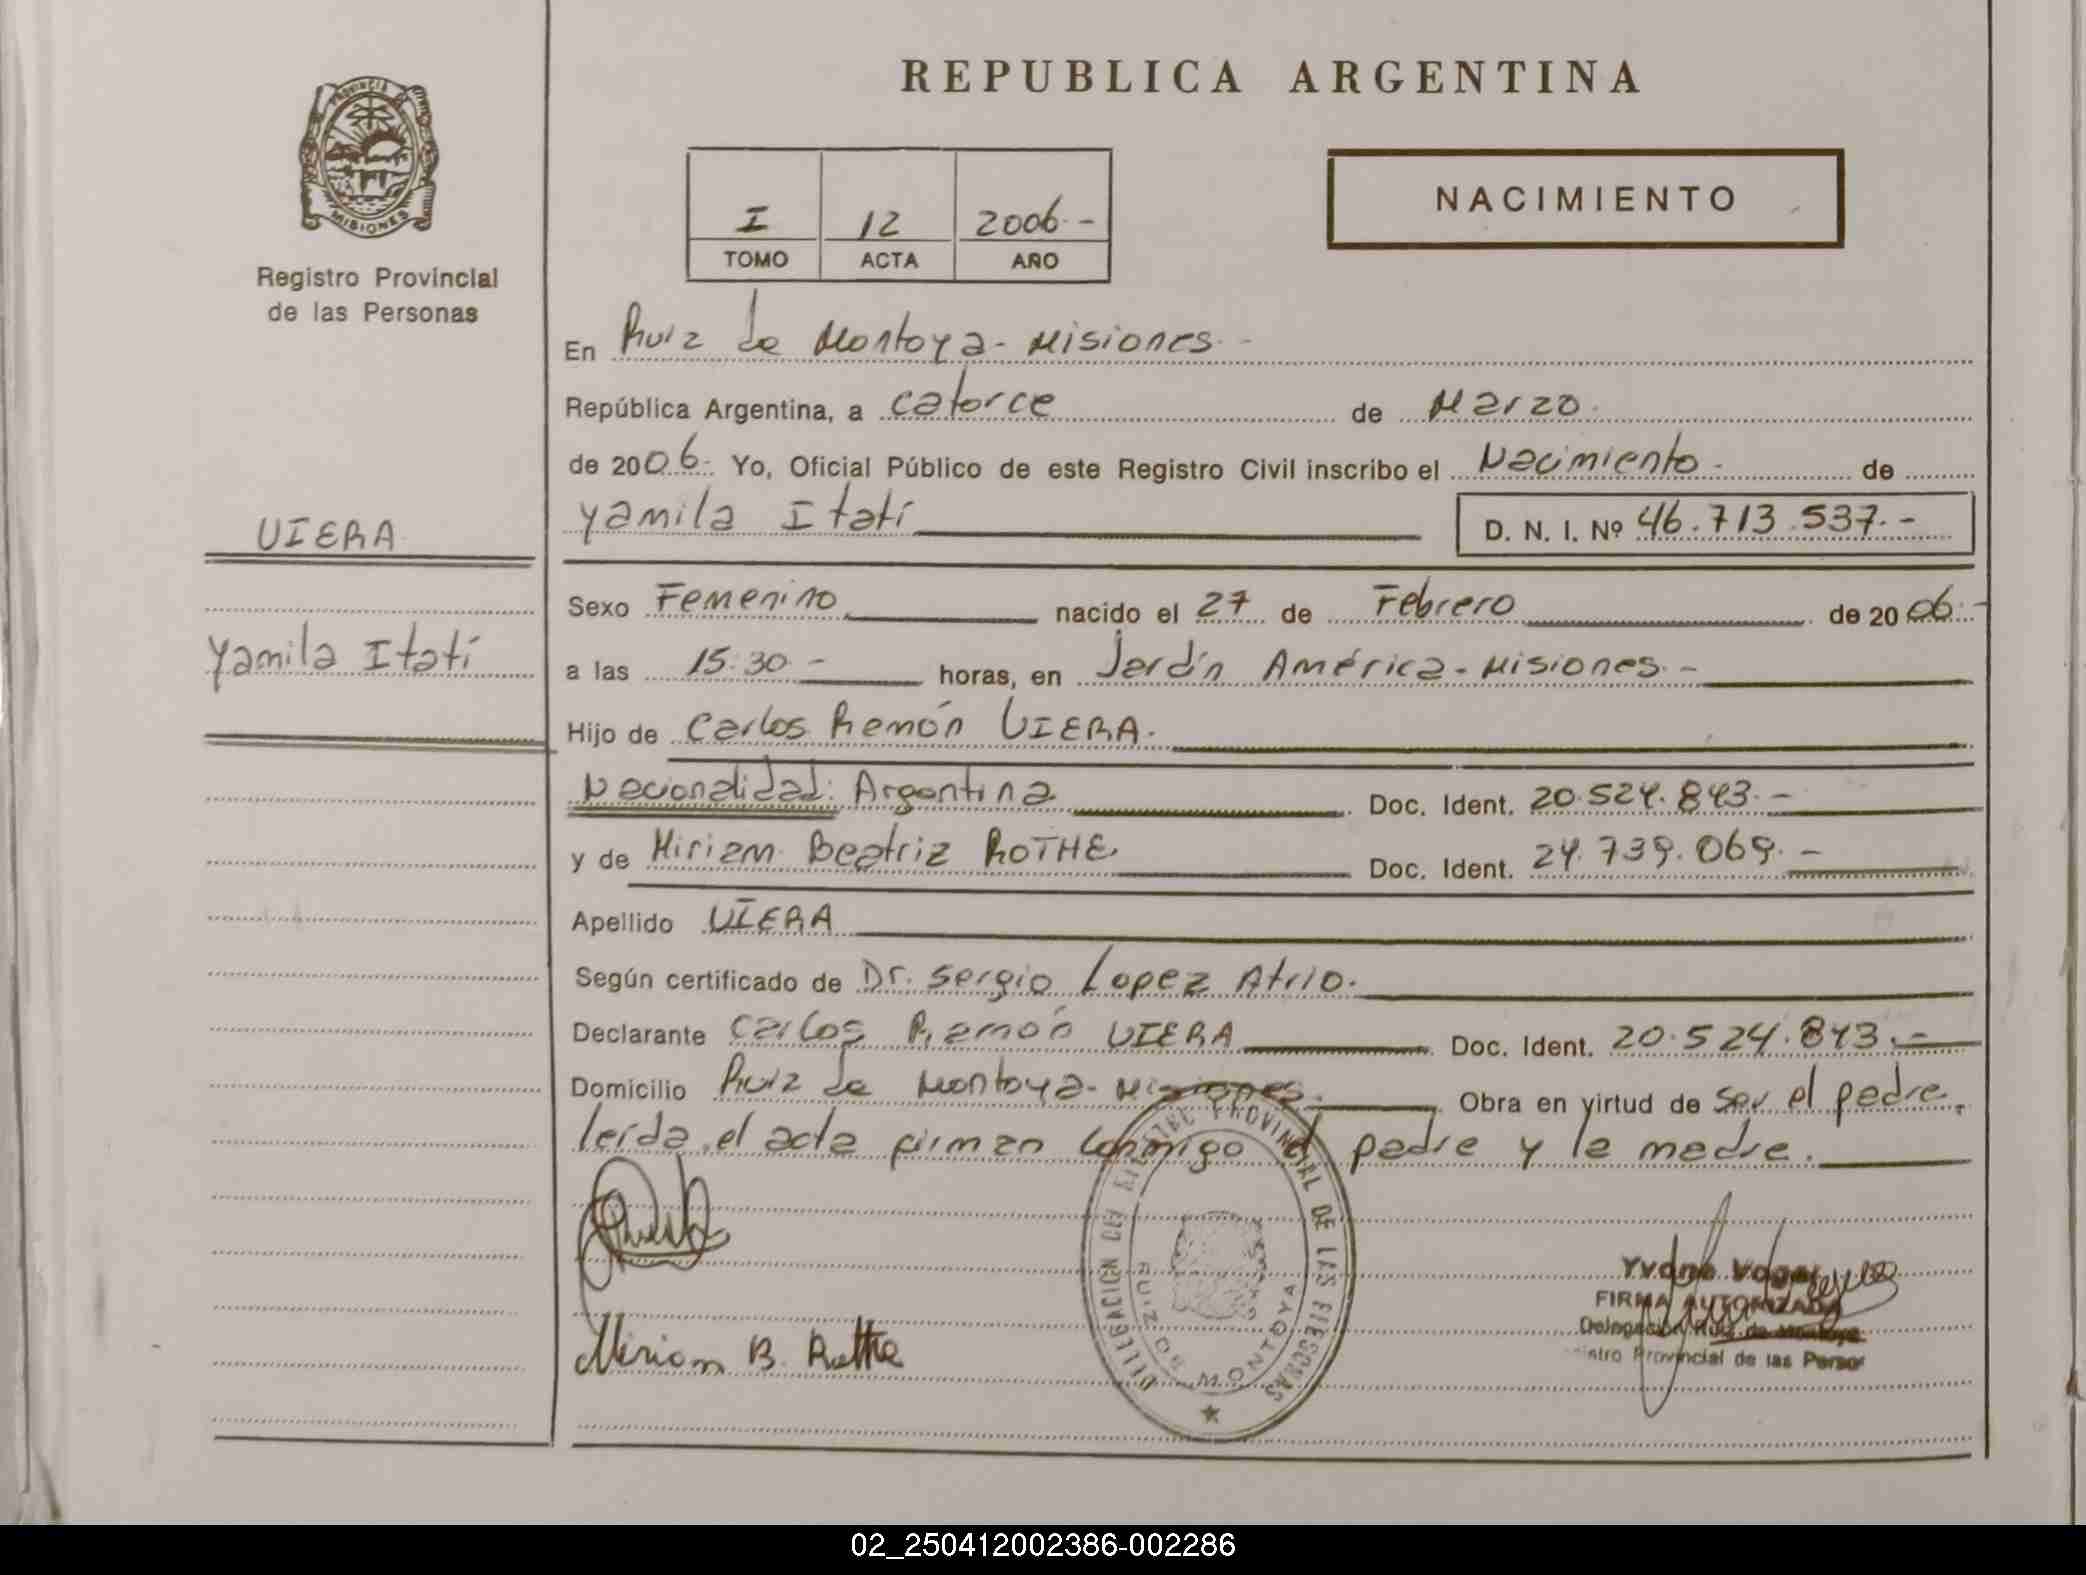 REPUBLICA ARGENTINA
PROVINCIA DE
MISIONES
Registro Provincial
de las Personas
I 12 2006.-
TOMO ACTA AÑO
NACIMIENTO
En Ruiz de Montoya - Misiones.-
República Argentina, a catorce de Marzo.
de 2006.- Yo, Oficial Público de este Registro Civil inscribo el Nacimiento.- de
Yamila Itatí
D. N. I. Nº 46.713.537.-
VIERA
Yamila Itatí
Sexo Femenino nacido el 27 de Febrero de 2006.-
a las 15.30.- horas, en Jardín América - Misiones.-
Hijo de Carlos Ramón VIERA.
Nacionalidad: Argentina Doc. Ident. 20.524.843.-
y de Miriam Beatriz ROTHE. Doc. Ident. 24.739.069.-
Apellido VIERA
Según certificado de Dr. Sergio Lopez Atrio.
Declarante Carlos Ramón VIERA Doc. Ident. 20.524.843.-
Domicilio Ruiz de Montoya - Misiones. Obra en virtud de ser el padre.
leída el acta firman conmigo el padre y la madre.
Miriam B. Rothe
DELEGACION DEL REGISTRO PROVINCIAL DE LAS PERSONAS
RUIZ DE MONTOYA
MISIONES
Yvone
FIRMA AUTORIZADA
Delegación Ruiz de Montoya
Provincial de las Person
02_250412002386-002286